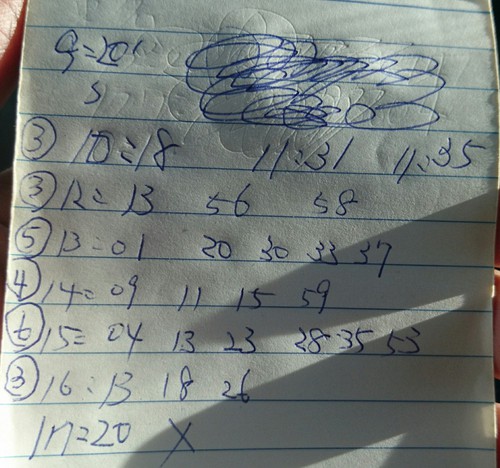 9=20
③ 10=18 11:31 11:35
③ 12= 13 56 58
⑤ 13=01 20 30 33 37
④ 14=09 11 15 59
⑥ 15=04 13 23 28 35 53
③ 16:13 18 26
17=20 X